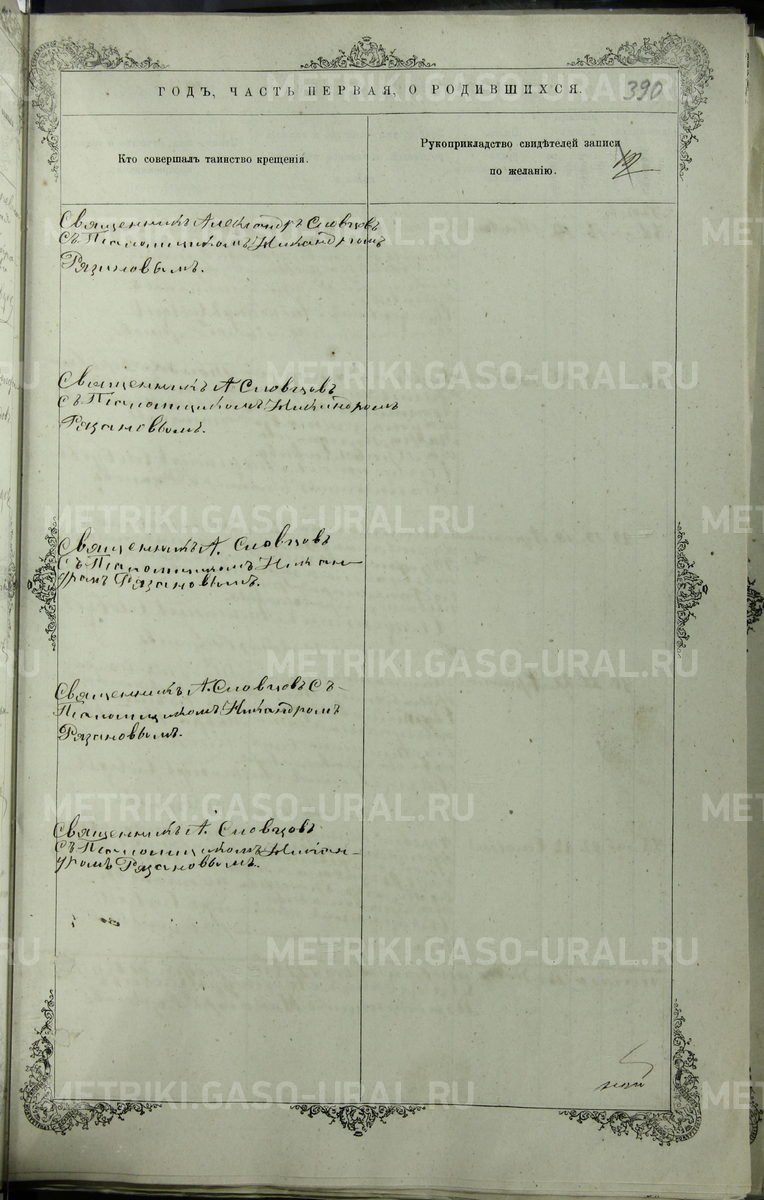 ГОДЪ, ЧАСТЬ ПЕРВАЯ, О РОДИВШИХСЯ.
390
Кто совершалъ таинство крещенія.
Рукоприкладство свидѣтелей записи
по желанію.
Священникъ Александръ Словцовъ
съ Псаломщикомъ Никандромъ
Рязановымъ.
Священникъ А Словцовъ
съ Псаломщикомъ Никандромъ
Рязановымъ.
Священникъ А. Словцовъ
съ Псаломщикомъ Никан-
дромъ Рязановымъ.
Священникъ А. Словцовъ съ
Псаломщикомъ Никандромъ
Рязановымъ.
Священникъ А. Словцовъ
съ Псаломщикомъ Никан-
дромъ Рязановымъ.
METRIKI.GASO-URAL.RU